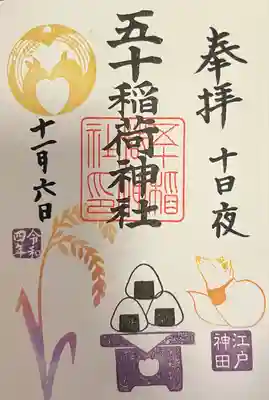 奉拝 十日夜
五十稲荷神社
十一月六日
令和四年
江戸神田